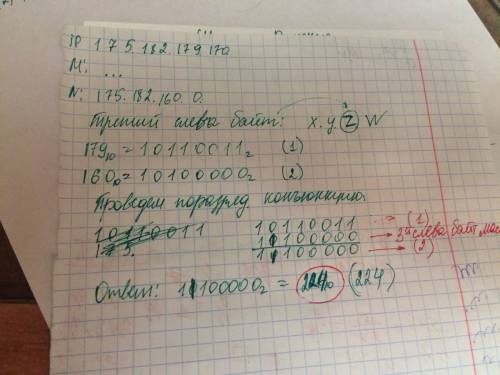 IP 175.182.179.170
M: ...
N: 175.182.160.0.
Третий слева байт: x.y z W
179₁₀ = 10110011₂ (1)
160₁₀ = 10100000₂ (2)
Проведем поразряд конъюнкцию.
10110011
10110011 (1)
11100000 → 3й слева байт мас
100000 → (2)
Ответ: 11100000₂ = 224₁₀ (224)